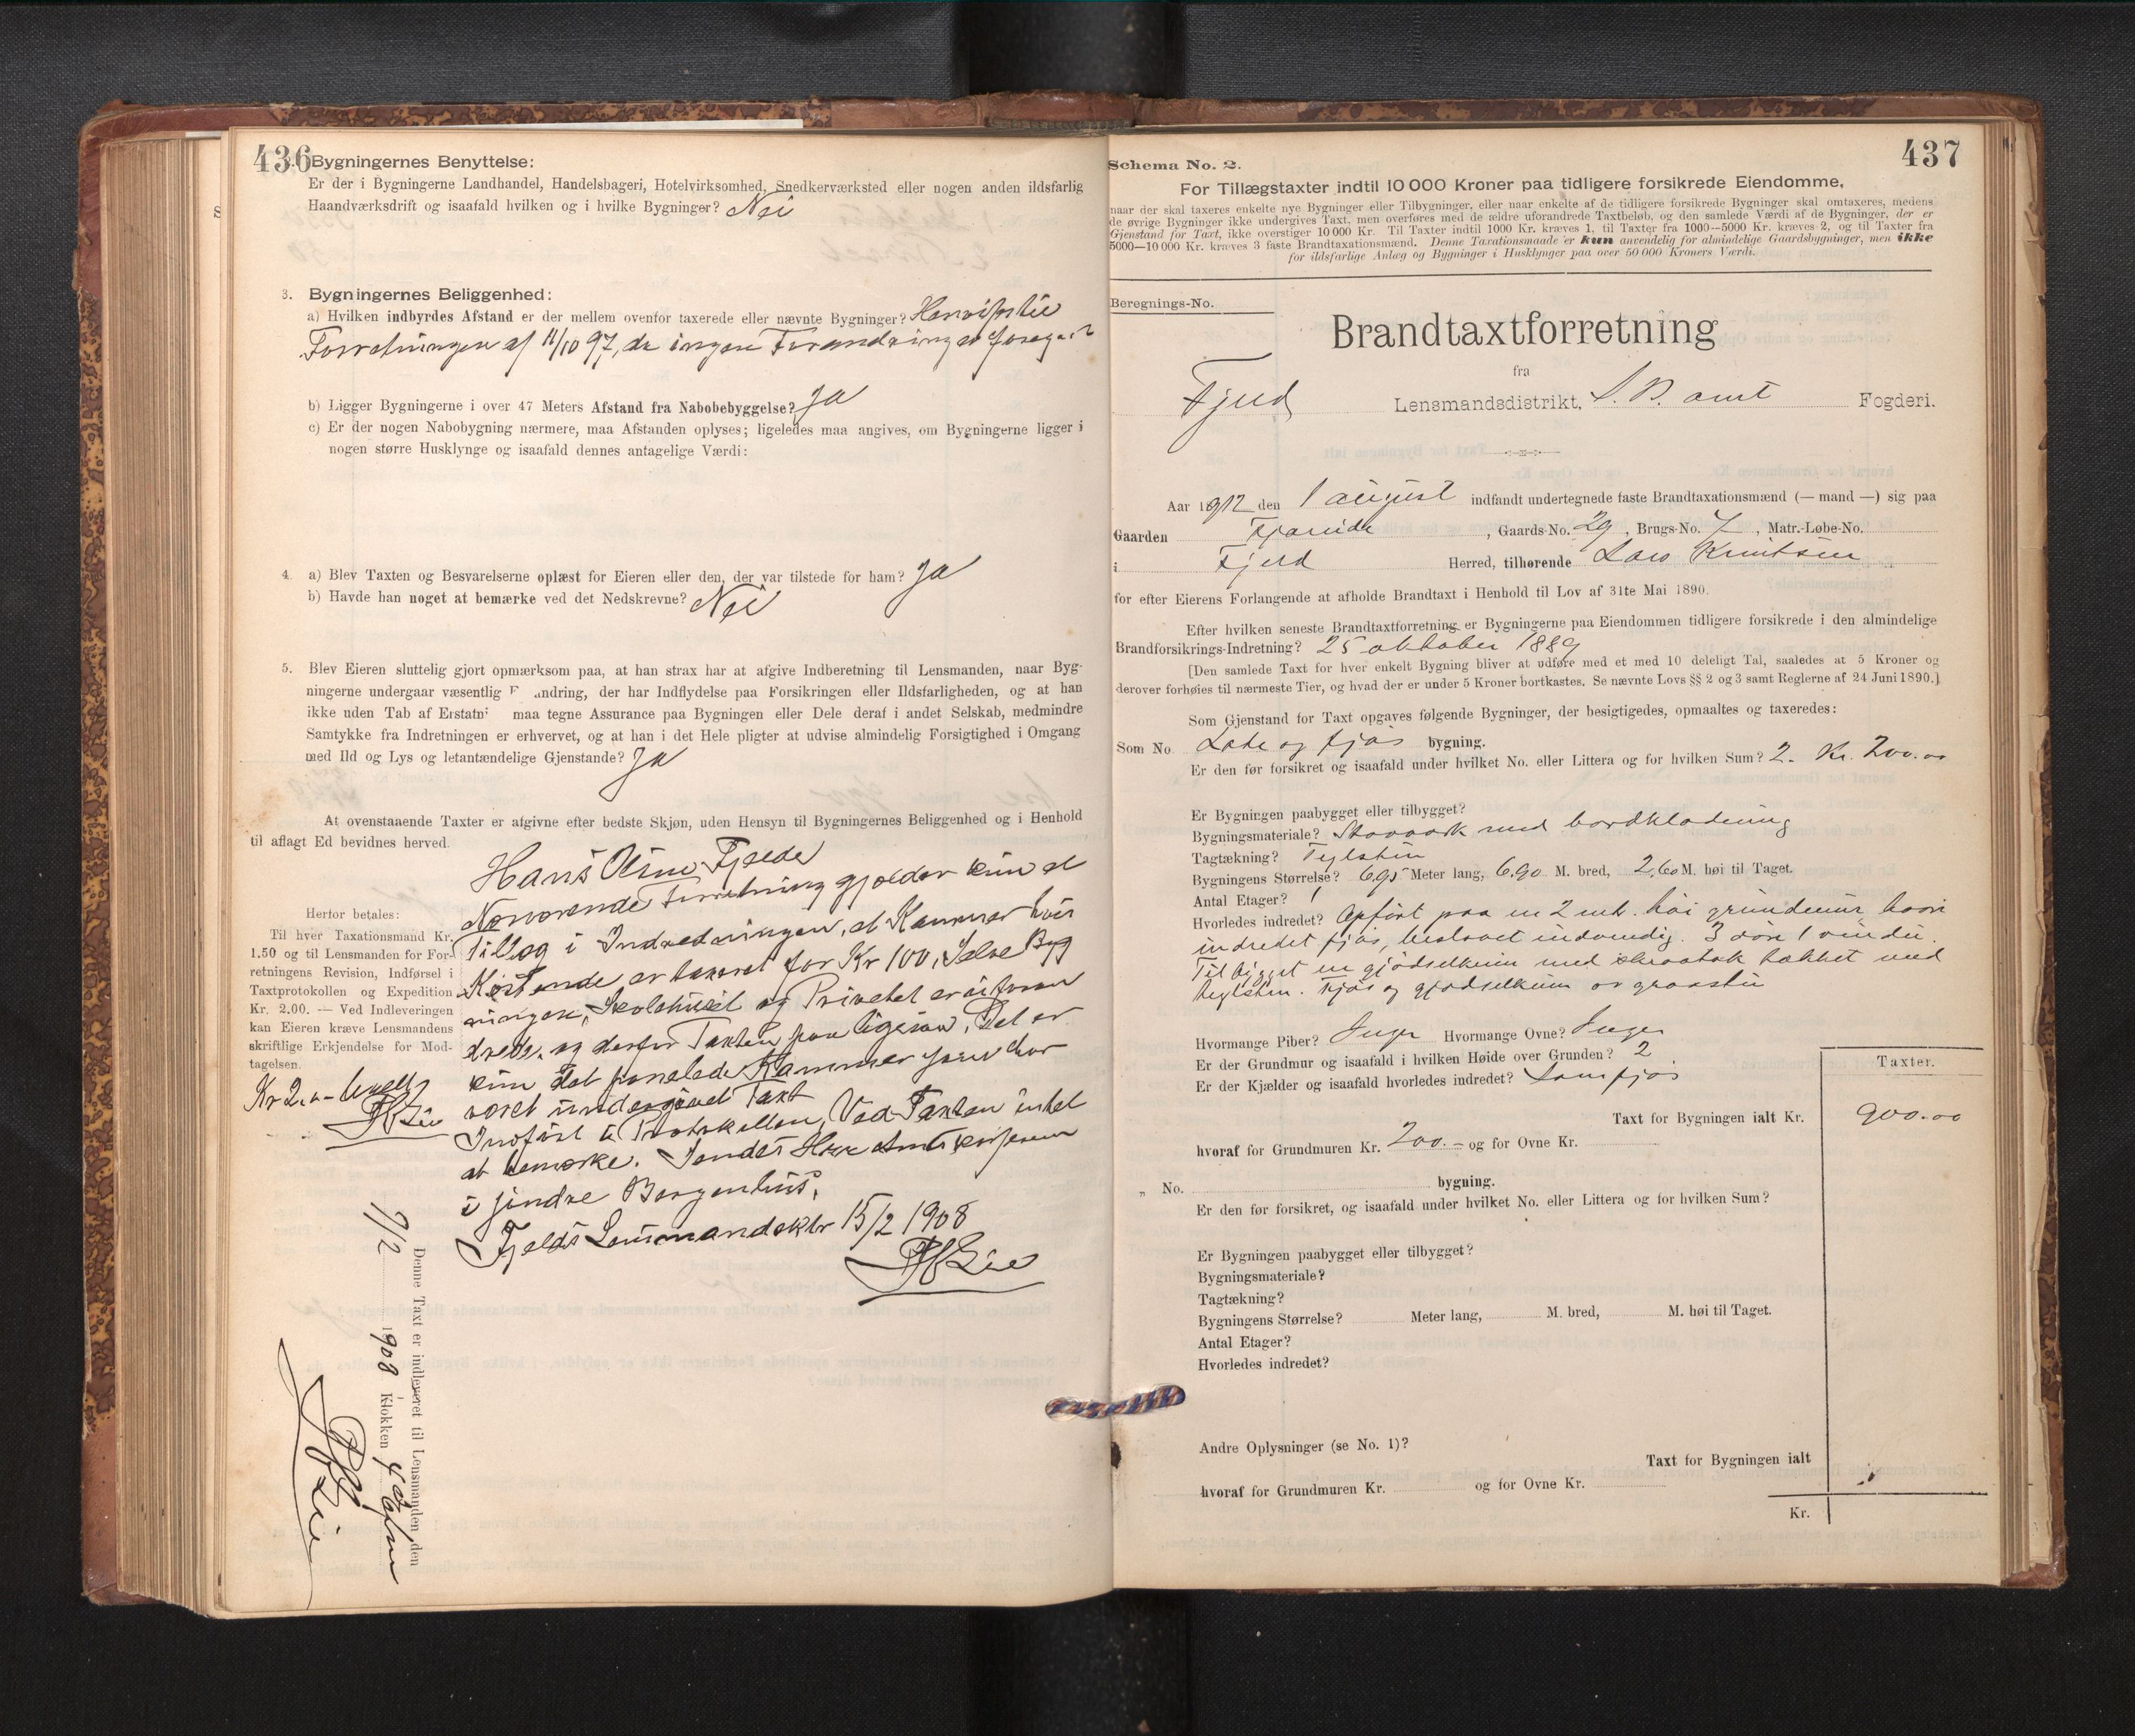 436
Bygningernes Benyttelse:
Er der i Bygningerne Landhandel, Handelsbageri, Hotelvirksomhed, Snedkerværksted eller nogen anden ildsfarlig
Haandværksdrift og isaafald hvilken og i hvilke Bygninger? Nei
3. Bygningernes Beliggenhed:
a) Hvilken indbyrdes Afstand er der mellem ovenfor taxerede eller nævnte Bygninger? Henvises til
Forretningen af 11/10 97, da ingen Forandring er foregaat
b) Ligger Bygningerne i over 47 Meters Afstand fra Nabobebyggelse? Ja
c) Er der nogen Nabobygning nærmere, maa Afstanden oplyses; ligeledes maa angives, om Bygningerne ligger i
nogen større Husklynge og isaafald dennes antagelige Værdi:
4. a) Blev Taxten og Besvarelserne oplæst for Eieren eller den, der var tilstede for ham? Ja
b) Havde han noget at bemærke ved det Nedskrevne? Nei
5. Blev Eieren sluttelig gjort opmærksom paa, at han strax har at afgive Indberetning til Lensmanden, naar Byg-
ningerne undergaar væsentlig F andring, der har Indflydelse paa Forsikringen eller Ildsfarligheden, og at han
ikke uden Tab af Erstatn maa tegne Assurance paa Bygningen eller Dele deraf i andet Selskab, medmindre
Samtykke fra Indretningen er erhvervet, og at han i det Hele pligter at udvise almindelig Forsigtighed i Omgang
med Ild og Lys og letantændelige Gjenstande? Ja
At ovenstaaende Taxter er afgivne efter bedste Skjøn, uden Hensyn til Bygningernes Beliggenhed og i Henhold
til aflagt Ed bevidnes herved.
Hans Olsen Fjælde
Nærværende Forretning gjælder kun et
Tillæg i Indredningen, et Kammer hvis
Kostende er taxeret for Kr 100, Selve Byg
ningen, Skolehuset og Privetet er uforan
drede, og derfor Taxten paa ligesaa. Det er
kun det panelede Kammer som har
været undergivet Taxt
Indført i Protokollen. Ved Taxten intet
at bemærke. Sendes Herr Amtskasserer
i søndre Bergenhus.
Fjelds Lensmandsktr 15/2 1908
Herfor betales:
Til hver Taxationsmand Kr.
1.50 og til Lensmanden for For-
retningens Revision, Indførsel i
Taxtprotokollen og Expedition
Kr. 2.00. — Ved Indleveringen
kan Eieren kræve Lensmandens
skriftlige Erkjendelse for Mod-
tagelsen.
Denne Taxt er indleveret til Lensmanden den
7/2 1908 Klokken 4
437
Schema No. 2.
For Tillægstaxter indtil 10 000 Kroner paa tidligere forsikrede Eiendomme,
naar der skal taxeres enkelte nye Bygninger eller Tilbygninger, eller naar enkelte af de tidligere forsikrede Bygninger skal omtaxeres, medens
de øvrige Bygninger ikke undergives Taxt, men overføres med de ældre uforandrede Taxtbeløb, og den samlede Værdi af de Bygninger, der er
Gjenstand for Taxt, ikke overstiger 10 000 Kr. Til Taxter indtil 1000 Kr. kræves 1, til Taxter fra 1000—5000 Kr. kræves 2, og til Taxter fra
5000—10 000 Kr. kræves 3 faste Brandtaxationsmænd. Denne Taxationsmaade er kun anvendelig for almindelige Gaardsbygninger, men ikke
for ildsfarlige Anlæg og Bygninger i Husklynger paa over 50 000 Kroners Værdi.
Beregnings-No.
Brandtaxtforretning
fra
Fjeld Lensmandsdistrikt, S. B. amt Fogderi.
Aar 1912 den 1 august indfandt undertegnede faste Brandtaxationsmænd (— mand —) sig paa
Gaarden , Gaards-No. 29, Brugs-No. 7, Matr.-Løbe-No.
i Fjeld Herred, tilhørende Lars Knutsen
for efter Eierens Forlangende at afholde Brandtaxt i Henhold til Lov af 31te Mai 1890.
Efter hvilken seneste Brandtaxtforretning er Bygningerne paa Eiendommen tidligere forsikrede i den almindelige
Brandforsikrings-Indretning? 25 oktober 1889
[Den samlede Taxt for hver enkelt Bygning bliver at udføre med et med 10 deleligt Tal, saaledes at 5 Kroner og
derover forhøies til nærmeste Tier, og hvad der er under 5 Kroner bortkastes. Se nævnte Lovs §§ 2 og 3 samt Reglerne af 24 Juni 1890.]
Som Gjenstand for Taxt opgaves følgende Bygninger, der besigtigedes, opmaaltes og taxeredes:
Som No. Lade og fjøs bygning.
Er den før forsikret og isaafald under hvilket No. eller Littera og for hvilken Sum? 2. Kr. 200.00
Er Bygningen paabygget eller tilbygget?
Bygningsmateriale? Stavværk med bordklædning
Tagtækning? Teglsten
Bygningens Størrelse? 6.95 Meter lang, 6.90 M. bred, 2,60 M. høi til Taget.
Antal Etager? 1
Hvorledes indredet? Opført paa en 2 mtr. høi grundmur, hvori
indredet fjøs, indvendig. 3 døre 1 vindu.
Tilbygget en gjødselkum med skraatak tækket med
teglsten. Fjøs og gjødselkum av graasten
Hvormange Piber? Ingen Hvormange Ovne? Ingen
Er der Grundmur og isaafald i hvilken Høide over Grunden? 2
Er der Kjælder og isaafald hvorledes indredet? Som fjøs
Taxter.
Taxt for Bygningen ialt Kr. 900.00
hvoraf for Grundmuren Kr. 200.— og for Ovne Kr.
„ No. bygning.
Er den før forsikret, og isaafald under hvilket No. eller Littera og for hvilken Sum?
Er Bygningen paabygget eller tilbygget?
Bygningsmateriale?
Tagtækning?
Bygningens Størrelse? Meter lang, M. bred, M. høi til Taget.
Antal Etager?
Hvorledes indredet?
Andre Oplysninger (se No. 1)?
Taxt for Bygningen ialt
hvoraf for Grundmuren Kr. og for Ovne Kr.
Kr.